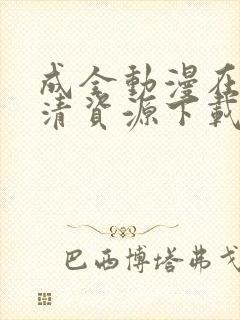 成全動漫在
清資源下載
巴西博塔弗戈